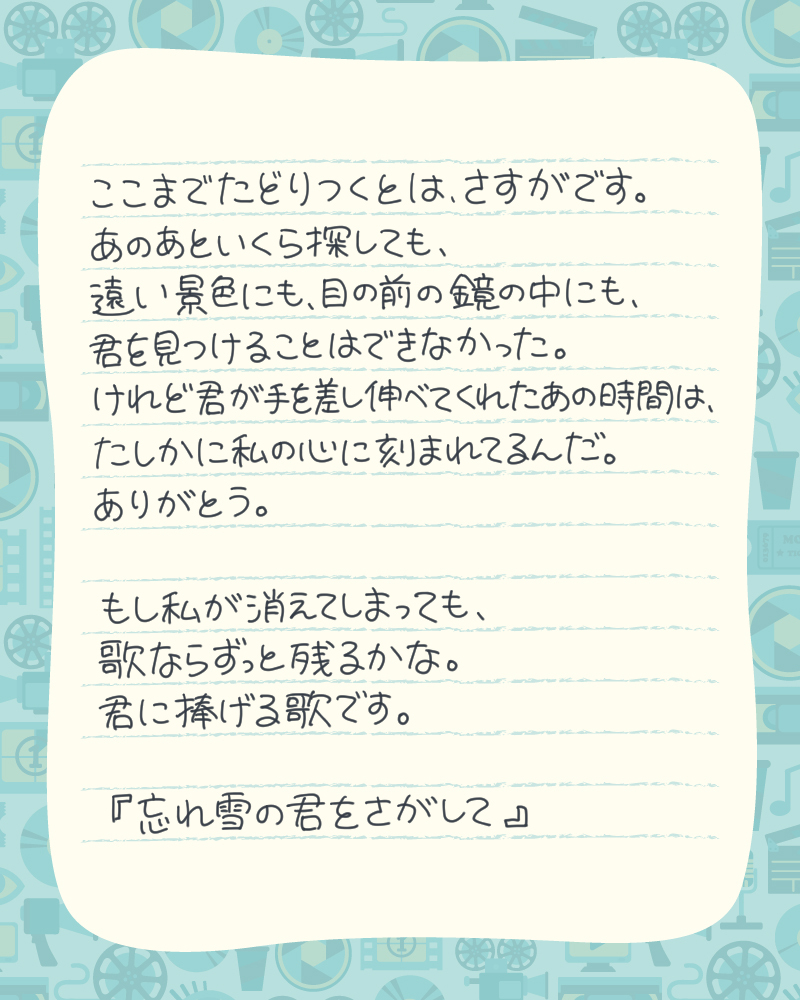 ここまでたどりつくとは、さすがです。
あのあといくら探しても、
遠い景色にも、目の前の鏡の中にも、
君を見つけることはできなかった。
けれど君が手を差し伸べてくれたあの時間は、
たしかに私の心に刻まれてるんだ。
ありがとう。
もし私が消えてしまっても、
歌ならずっと残るかな。
君に捧げる歌です。
『忘れ雪の君をさがして』